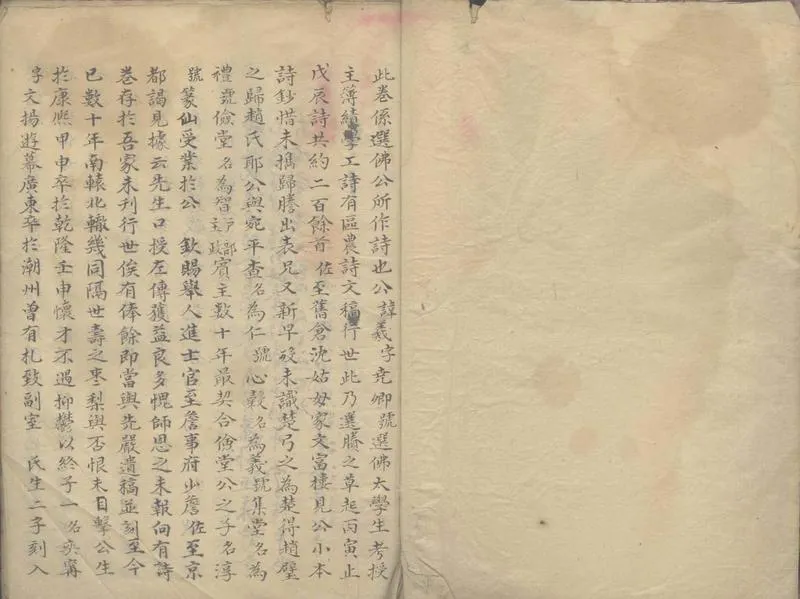 此卷係選佛公所作詩也公諱羲字堯卿號選佛太學生考授
主薄績學工詩有區農詩文稿行世此乃選賸之草起丙寅止
戊辰詩共約二百餘首佐至舊倉沈姑母家文富樓見公小本
詩鈔惜未携歸謄出表兄又新早歿未識楚弓之為楚得趙璧
之歸趙氏耶公與宛平查名為仁號心穀名為義號集堂名為
禮號儉堂名為智戶部主政賓主數十年最契合儉堂公之子名淳
號篆仙受業於公 欽賜舉人進士官至詹事府少詹佐至京
都謁見據云先生口授左傳獲益良多愧師恩之未報向有詩
卷存於吾家未刊行世俟有俸餘即當與先嚴遺稿並刻至今
已數十年南轅北轍幾同隔世壽之棗梨與否恨未目擊公生
於康熙甲申卒於乾隆壬申懷才不遇抑鬱以終子一名奕甯
字文揚遊幕廣東卒於潮州曾有札致副室 氏生二子刻入